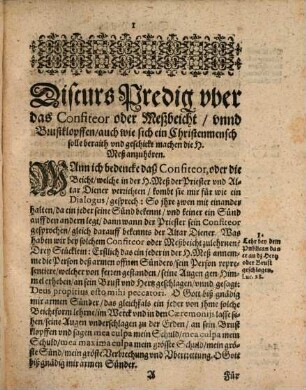 1
Discurs Predig vber
das Confiteor oder Meßbeicht / vnnd
Brustklopffen / auch wie sich ein Christenmensch
solle beraith vnd geschickt machen die H.
Meß anzuhören.
WAnn ich bedencke daß Confiteor, oder die
Beicht / welche in der H. Meß der Priester vnd Al-
tar Diener verrichten / kombt sie mir für wie ein
Dialogus / gespräch: So ihre zwen mit einander
halten / da ein jeder seine Sünd bekennt / vnd keiner ein Sünd
auff den andern legt / dann wann der Priester sein Confiteor
gesprochen / gleich darauff bekennts der Altar Diener. Was
haben wir bey solchem Confiteor oder Meßbeicht zulehrnen /
Drey Stücklein: Erstlich das ein jeder in der H. Meß annemme
die Person deß armen offnen Sünders / sein Person repræ-
sentiere / welcher von fersten gestanden / seine Augen gen Him-
mel erheben / an sein Brust vnd Hertz geschlagen / vnnd gesagt:
Deus propitius esto mihi peccatori. O Gott biß gnädig
mir armen Sünder / das gleichfals ein jeder von ihme solche
Beichtform lehrne / im Werck vnd in den Cæremonijs lasse se-
hen / seine Augen vnderschlagen zu der Erden / an sein Brust
klopffen vnd sagen mea culpa mein Schuld / mea culpa mein
Schuld / mea maxima culpa mein gröste Schuld / mein gröste
Sünd / mein gröste Verbrechung vnd Vbertrettung. O Gott
biß gnädig mir armen Sünder.
1.
Lehr bey dem
Publicanen das
er an das Hertz
oder Brust
geschlagen.
Luc. 18.
A
Für